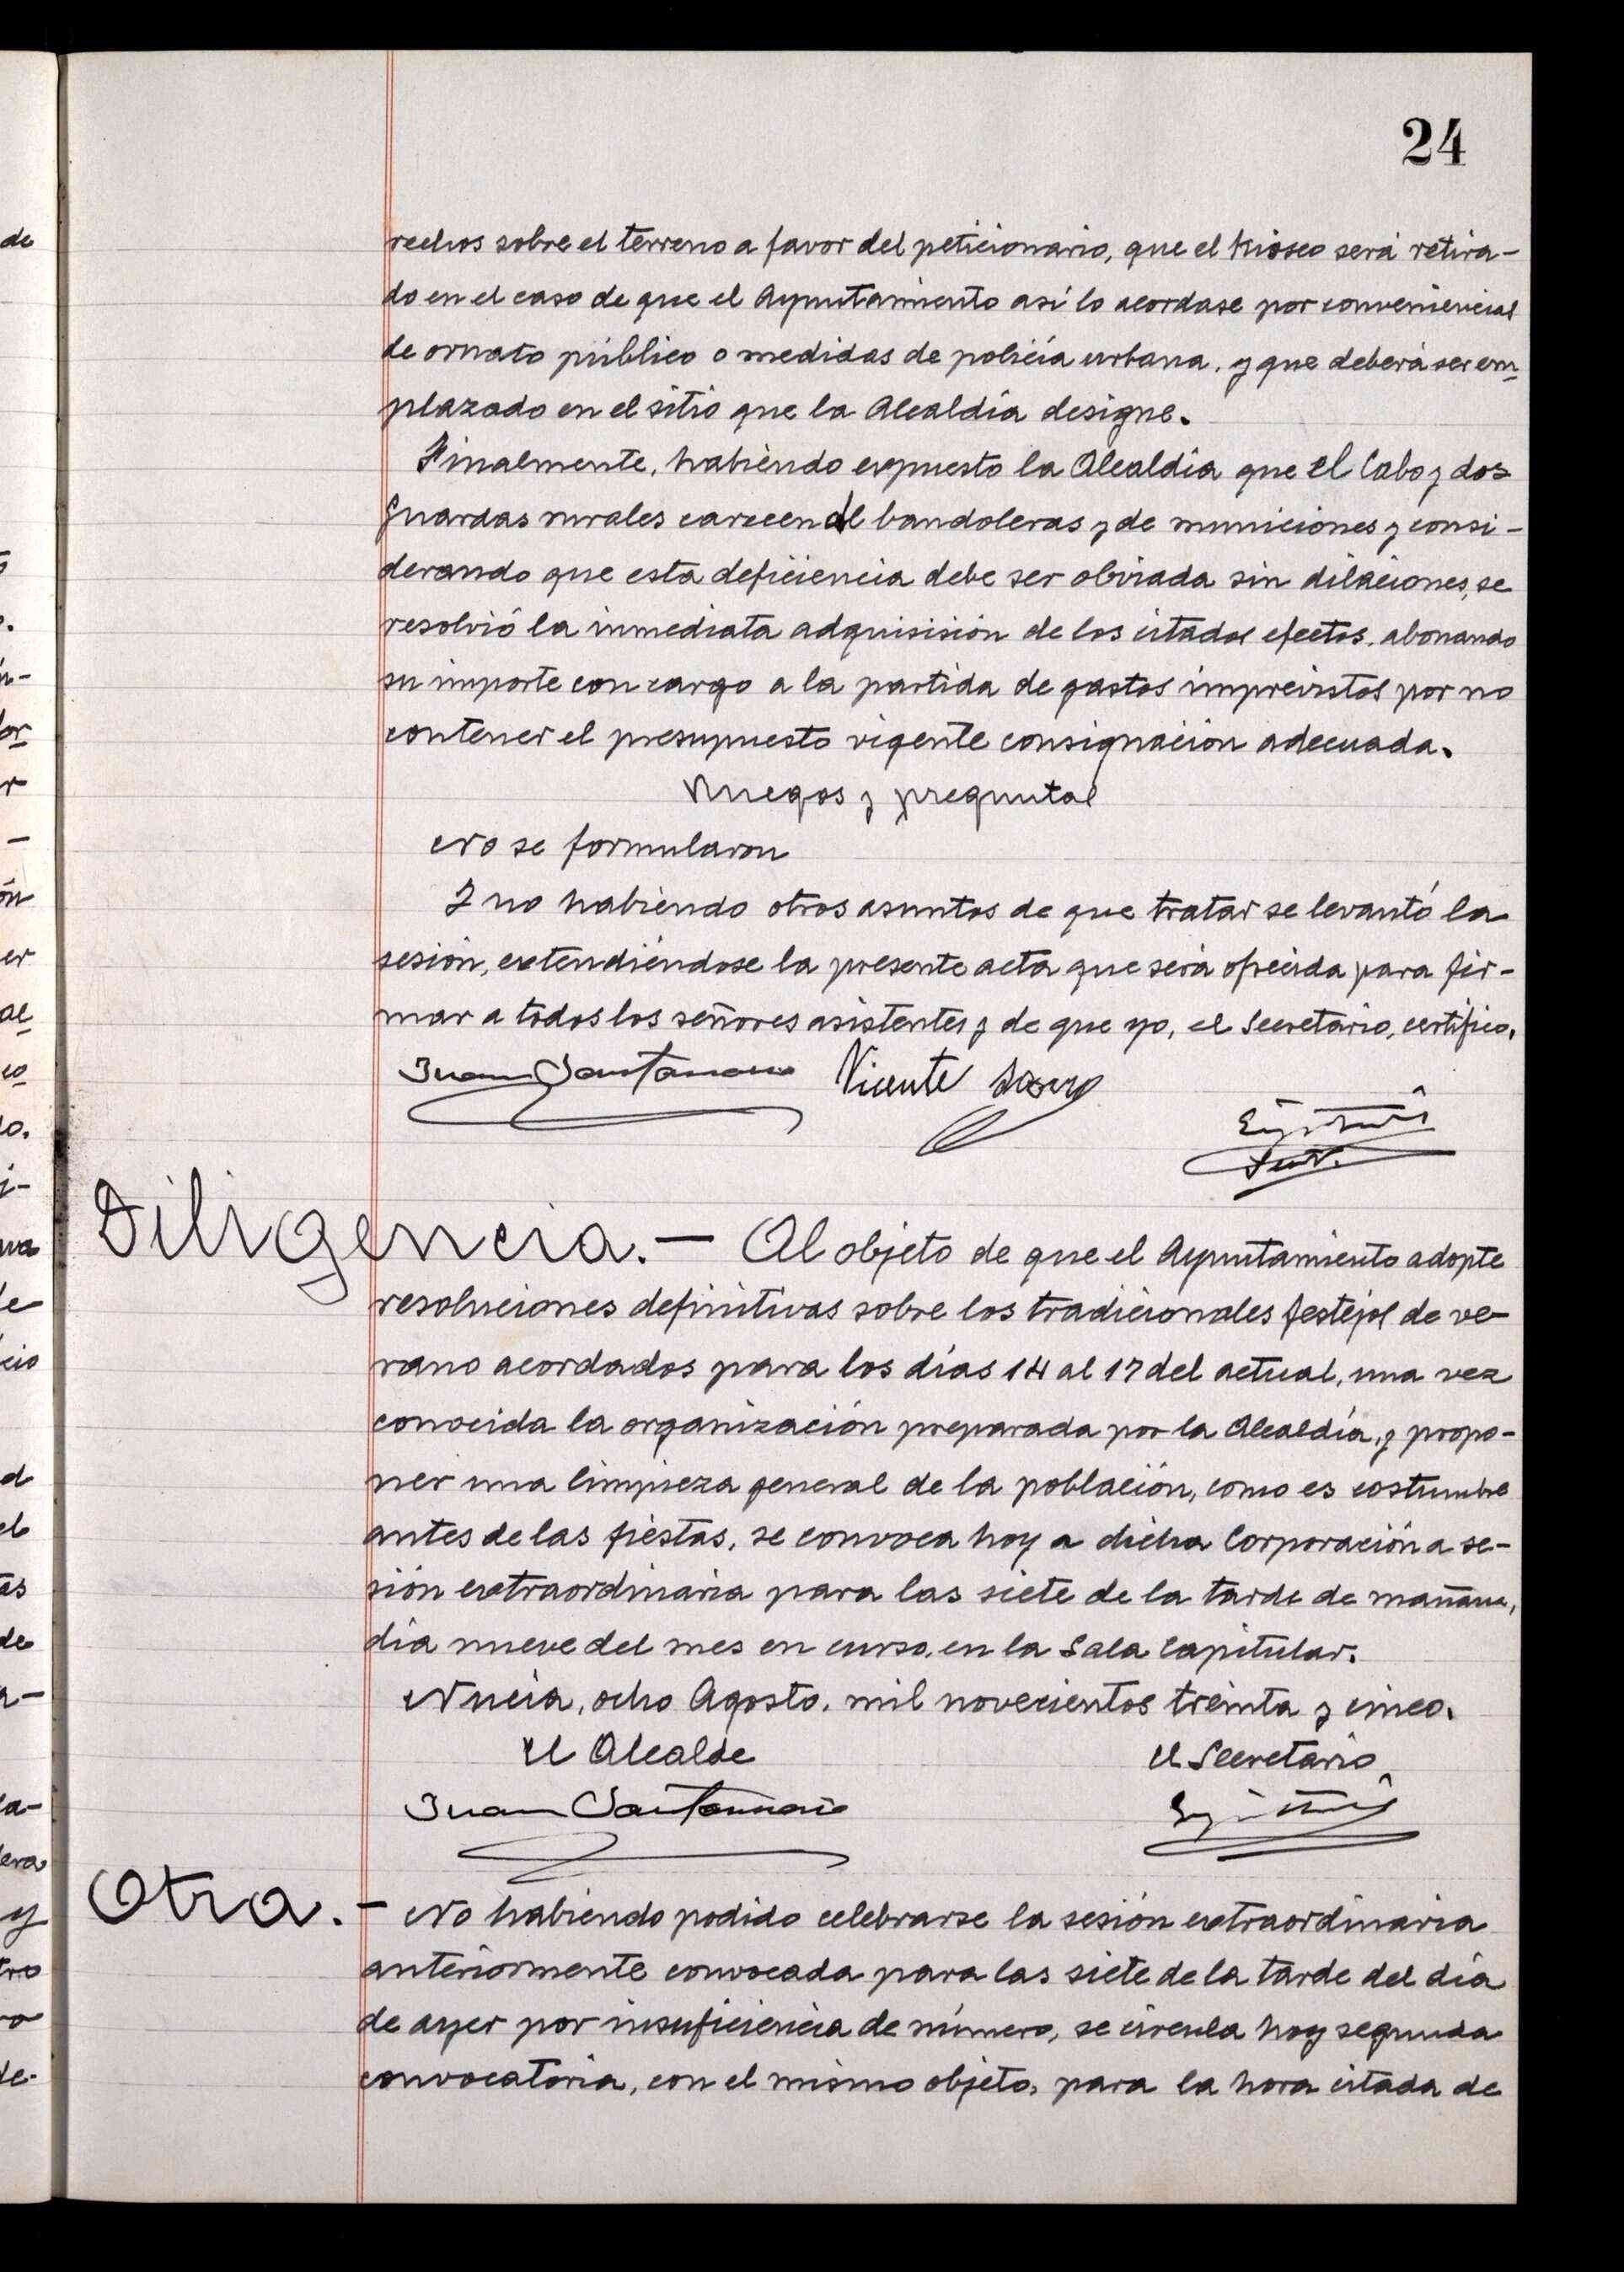 24
rechos sobre el terreno a favor del peticionario, que el Kiosco será retira-
do en el caso de que el Ayuntamiento así lo acordase por conveniencias
de ornato público o medidas de policía urbana, y que deberá ser em-
plazado en el sitio que la Alcaldía designe.
Finalmente, habiendo expuesto la Alcaldía que el Cabo y dos
guardas rurales carecen de bandoleras y de municiones y consi-
derando que esta deficiencia debe ser obviada sin dilaciones, se
resolvió la inmediata adquisisión de los citados efectos, abonando
su importe con cargo a la partida de gastos imprevistos por no
contener el presupuesto vigente consignación adecuada.
Ruegos y preguntas
No se formularon
Y no habiendo otros asuntos de que tratar se levantó la
sesión, extendiéndose la presente acta que será ofrecida para fir-
mar a todos los señores asistentes y de que yo, el Secretario, certifico.
Juan Vicente
Diligencia.- Al objeto de que el Ayuntamiento adopte
resoluciones definitivas sobre los tradicionales festejos de ve-
rano acordados para los días 14 al 17 del actual, una vez
conocida la organización preparada por la Alcaldía, y propo-
ner una limpieza general de la población, como es costumbre
antes de las fiestas, se convoca hoy a dicha Corporación a se-
sión extraordinaria para las siete de la tarde de mañana,
día nueve del mes en curso, en la Sala Capitular.
Nucia, ocho Agosto, mil novecientos treinta y cinco.
El Alcalde El Secretario,
Juan
Otra.- No habiendo podido celebrarse la sesión extraordinaria
anteriormente convocada para las siete de la tarde del día
de ayer por insuficiencia de número, se circula hoy segunda
convocatoria, con el mismo objeto, para la hora citada de